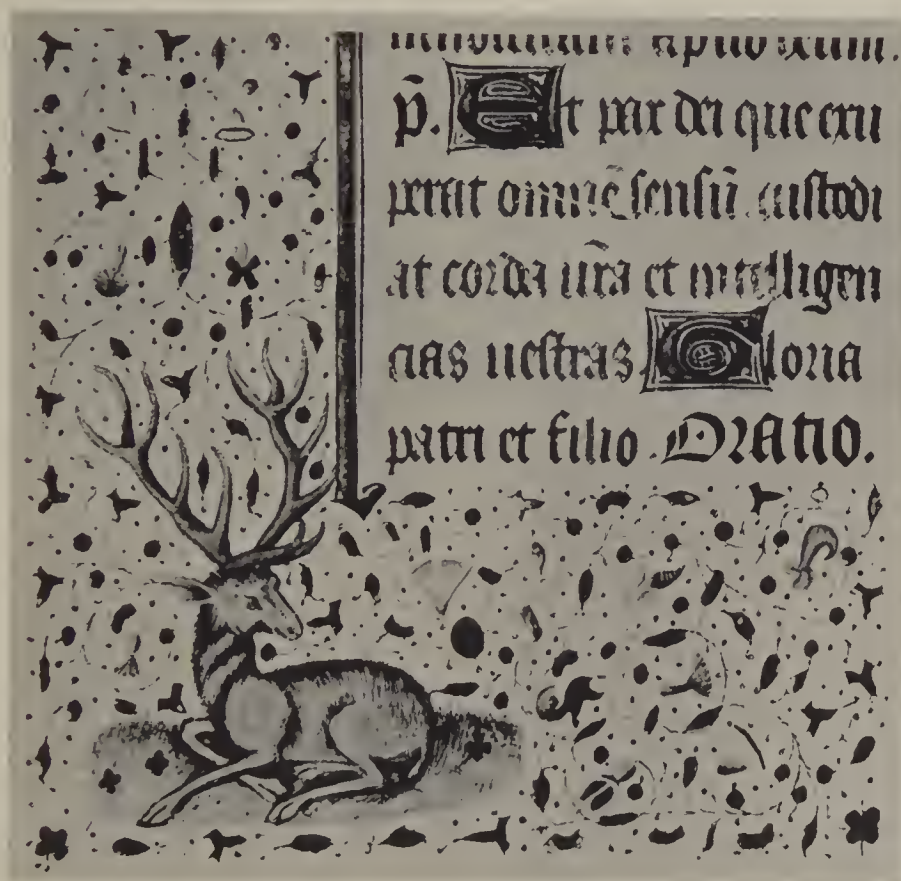 apud deum.
p̄. Et pax dei que exu
perat omnē sensū. custodi
at corda vr̄a et intelligen
cias uestras. Gloria
patri et filio. Oratio.